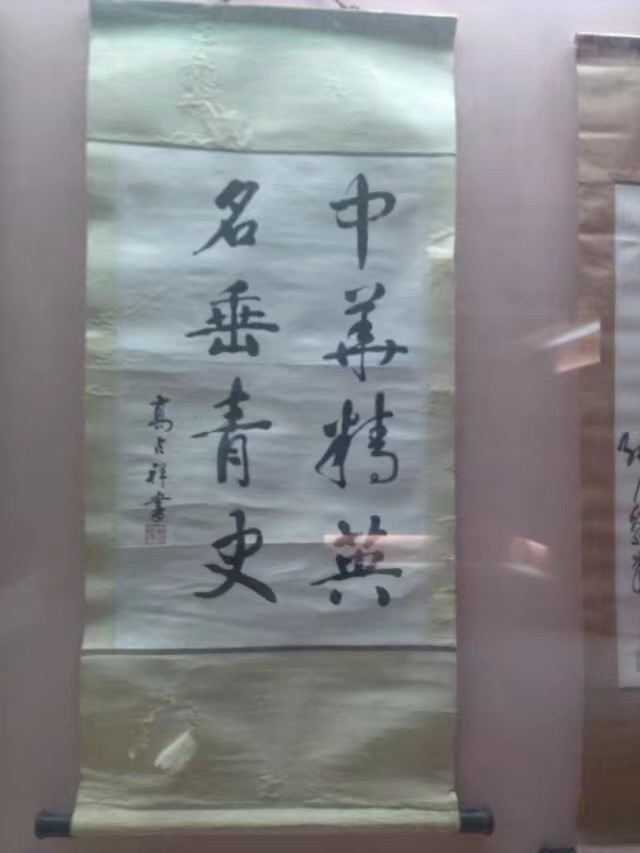 中華精英
名垂青史
高占祥書